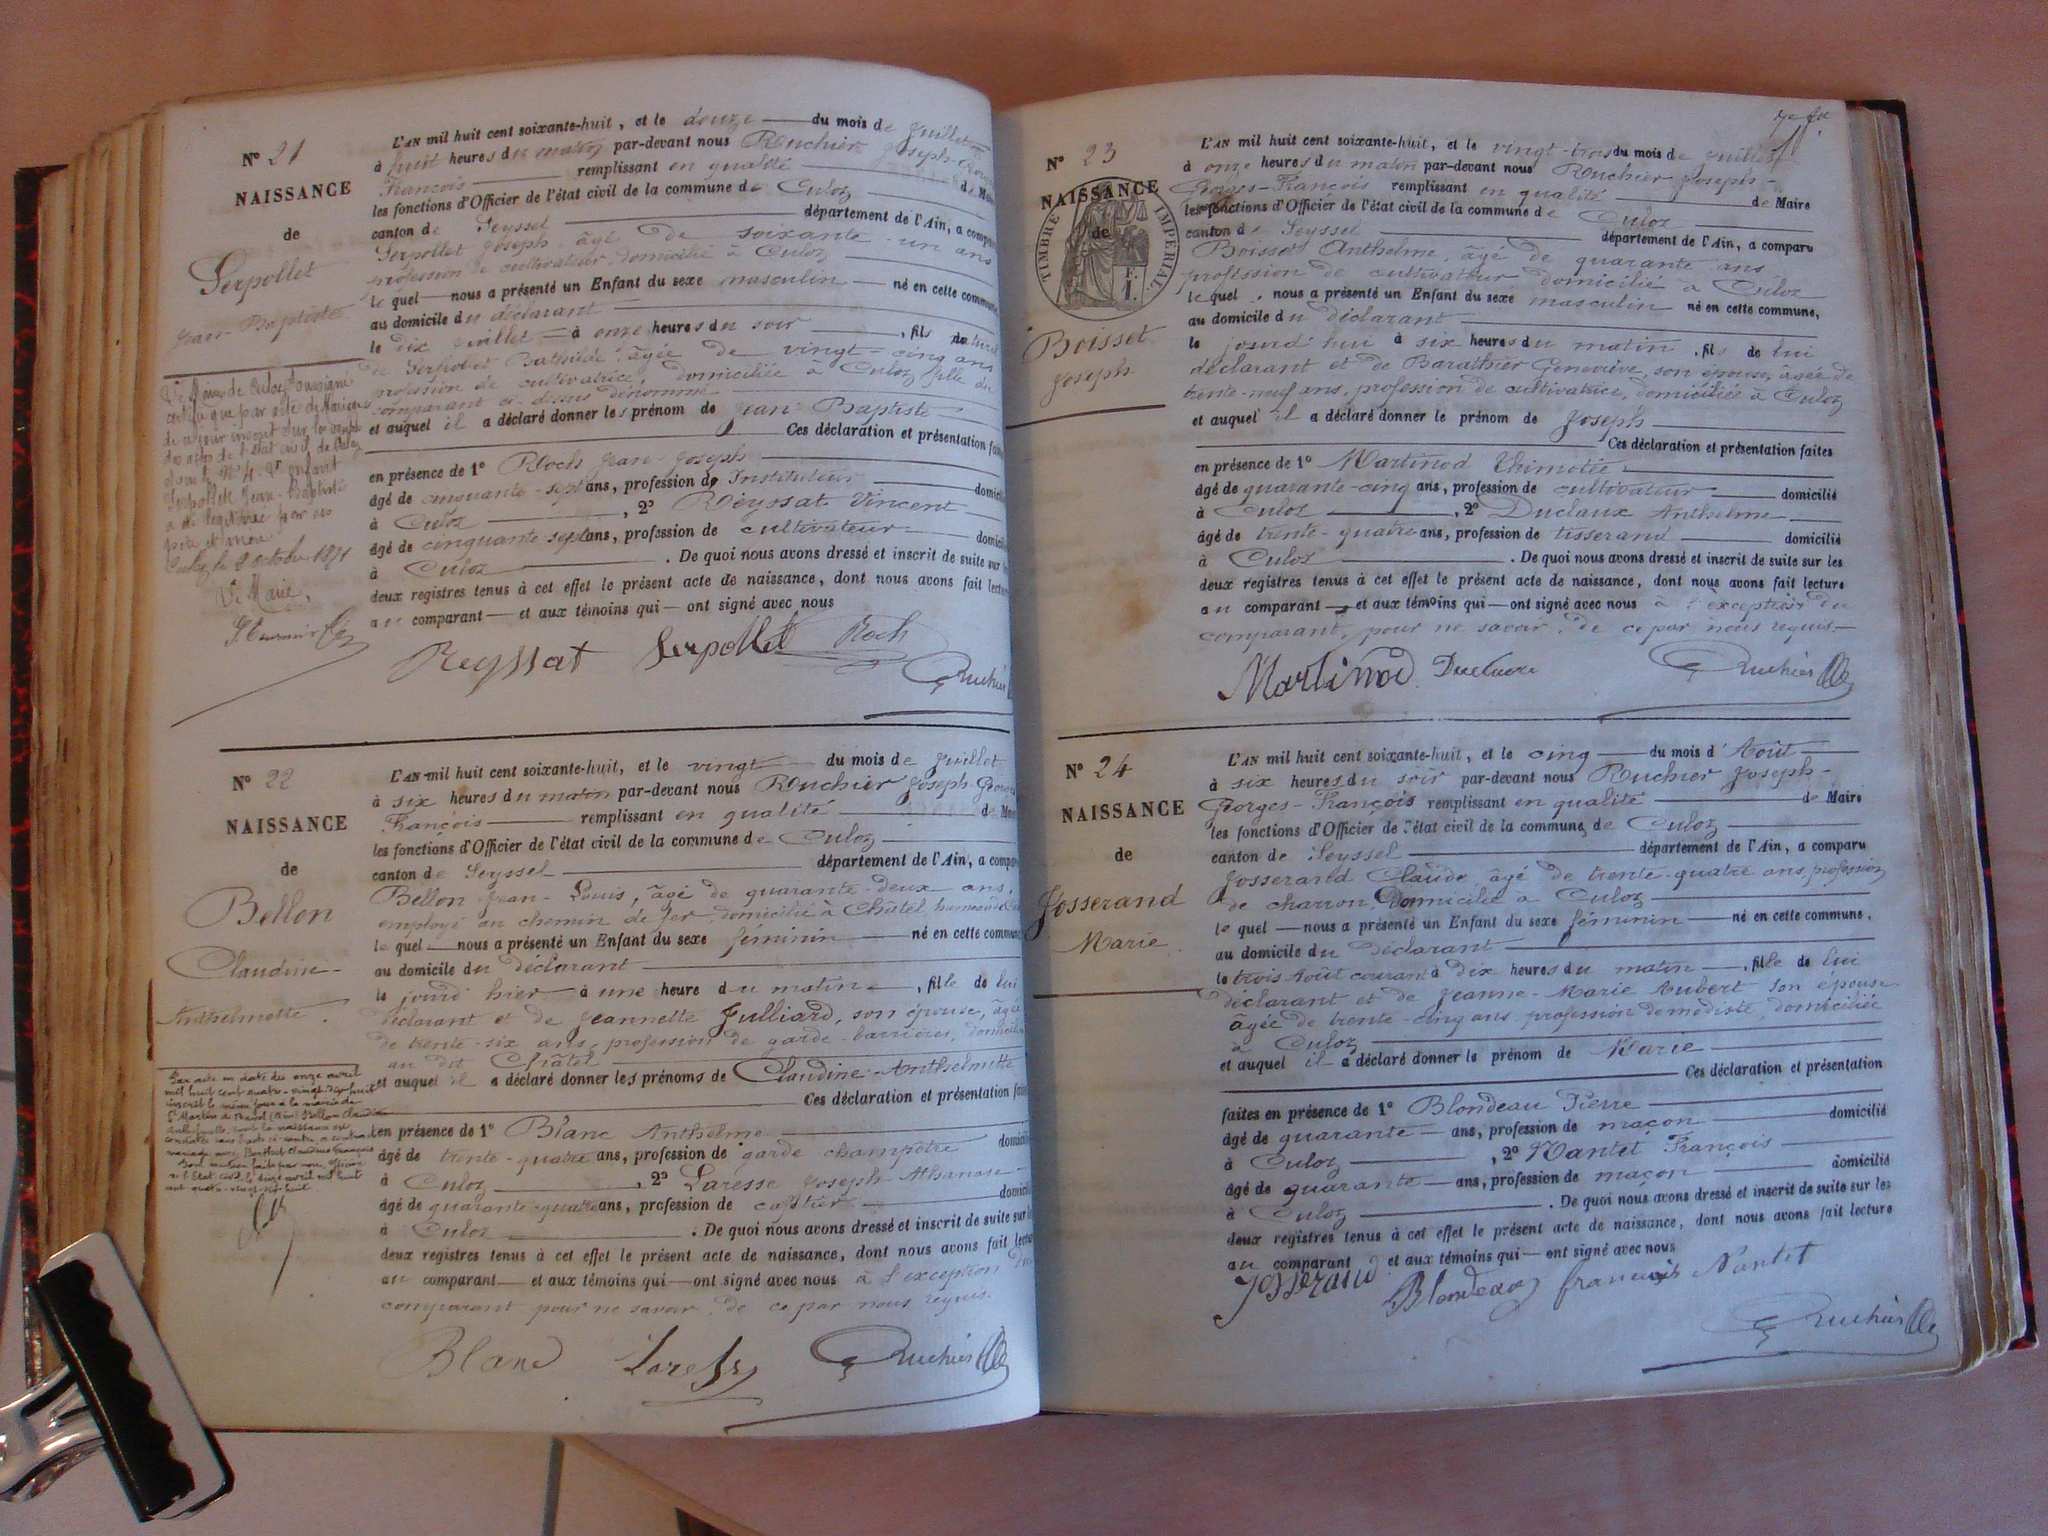 N° 21
NAISSANCE
de
Serpollet
Jean-Baptiste
L'AN mil huit cent soixante-huit, et le douze du mois de Juillet
à huit heures du matin par-devant nous Ruchier Joseph-Georges
François remplissant en qualité de Maire
les fonctions d'Officier de l'état civil de la commune de Culoz
canton de Seyssel département de l'Ain, a comparu
Serpollet Joseph, âgé de soixante-un ans
profession de cultivateur, domicilié à Culoz
le quel nous a présenté un Enfant du sexe masculin né en cette commune,
au domicile du déclarant
le dix juillet à onze heures du soir, fils naturel
de Serpollet Bathilde, âgée de vingt-cinq ans
profession de cultivatrice, domiciliée à Culoz fille du
comparant ci-dessus dénommé
et auquel il a déclaré donner les prénom de Jean Baptiste
Ces déclaration et présentation faites
en présence de 1° Roch Jean-Joseph
âgé de cinquante-sept ans, profession de Instituteur domicilié
à Culoz, 2° Reyssat Vincent
âgé de cinquante sept ans, profession de cultivateur domicilié
à Culoz. De quoi nous avons dressé et inscrit de suite sur les
deux registres tenus à cet effet le présent acte de naissance, dont nous avons fait lecture
au comparant et aux témoins qui ont signé avec nous
Reyssat Serpollet Roch
Ruchier
Le Maire de Culoz soussigné
certifie que par acte de Mariage
de ce jour inscrit sur le
des actes de l'état civil de Culoz
N° 4. enfant
Serpollet Jean-Baptiste
a été légitimé par ses
père et mère
Culoz le 2 octobre 1871
Le Maire,
N° 22
NAISSANCE
de
Bellon
Claudine-
Anthelmette.
L'AN mil huit cent soixante-huit, et le vingt du mois de Juillet
à six heures du matin par-devant nous Ruchier Joseph-Georges
François remplissant en qualité de Maire
les fonctions d'Officier de l'état civil de la commune de Culoz
canton de Seyssel département de l'Ain, a comparu
Bellon Jean-Louis, âgé de quarante-deux ans,
employé au chemin de fer, domicilié à Châtel, hameau de
le quel nous a présenté un Enfant du sexe féminin né en cette commune
au domicile du déclarant
le jourd'hier à une heure du matin, fille de lui
déclarant et de Jeannette Julliard, son épouse, âgée
de trente-six ans, profession de garde-barrières, domiciliée
au dit Châtel
et auquel il a déclaré donner les prénoms de Claudine-Anthelmette
Ces déclaration et présentation faites
en présence de 1° Blanc Anthelme
âgé de trente-quatre ans, profession de garde champêtre domicilié
à Culoz, 2° Laresse Joseph-Athanase
âgé de quarante-quatre ans, profession de domicilié
à Culoz. De quoi nous avons dressé et inscrit de suite sur les
deux registres tenus à cet effet le présent acte de naissance, dont nous avons fait lecture
au comparant et aux témoins qui ont signé avec nous à l'exception du
comparant pour ne savoir, de ce par nous requis.
Blanc Ruchier
Par acte en date du onze avril
mil huit cent quatre-vingt-dix huit
inscrit le même jour à la mairie de
St Martin de Bavel (Ain) Bellon Claudine
Anthelmette dont la naissance est
constatée dans l'acte ci-contre, a contracté
mariage avec Berthet Claudius François
N° 23
NAISSANCE
de
TIMBRE IMPERIAL
1 F.
Boisset
Joseph
L'AN mil huit cent soixante-huit, et le vingt-trois du mois de Juillet
à onze heures du matin par-devant nous Ruchier Joseph-
Georges-François remplissant en qualité de Maire
les fonctions d'Officier de l'état civil de la commune de Culoz
canton de Seyssel département de l'Ain, a comparu
Boisset Anthelme, âgé de quarante ans
profession de cultivateur domicilié à Culoz
le quel nous a présenté un Enfant du sexe masculin né en cette commune,
au domicile du déclarant
le jourd'hui à six heures du matin, fils de lui
déclarant et de Barathier Geneviève, son épouse, âgée de
trente-neuf ans, profession de cultivatrice, domiciliée à Culoz
et auquel il a déclaré donner le prénom de Joseph
Ces déclaration et présentation faites
en présence de 1° Martinod Thimotée
âgé de quarante-cinq ans, profession de cultivateur domicilié
à Culoz, 2° Duclaux Anthelme
âgé de trente-quatre ans, profession de tisserand domicilié
à Culoz. De quoi nous avons dressé et inscrit de suite sur les
deux registres tenus à cet effet le présent acte de naissance, dont nous avons fait lecture
au comparant et aux témoins qui ont signé avec nous à l'exception du
comparant, pour ne savoir, de ce par nous requis.
Martinod Duclaux Ruchier
N° 24
NAISSANCE
de
Josserand
Marie.
L'AN mil huit cent soixante-huit, et le cinq du mois d'Août
à six heures du soir par-devant nous Ruchier Joseph-
Georges-François remplissant en qualité de Maire
les fonctions d'Officier de l'état civil de la commune de Culoz
canton de Seyssel département de l'Ain, a comparu
Josserand Claude, âgé de trente-quatre ans, profession
de charron domicilié à Culoz
le quel nous a présenté un Enfant du sexe féminin né en cette commune,
au domicile du déclarant
le trois Août courant à dix heures du matin, fille de lui
déclarant et de Jeanne-Marie Aubert son épouse
âgée de trente-cinq ans profession de modiste, domiciliée
à Culoz
et auquel il a déclaré donner le prénom de Marie
Ces déclaration et présentation
faites en présence de 1° Blondeau Pierre
âgé de quarante ans, profession de maçon domicilié
à Culoz, 2° Nantet François
âgé de quarante ans, profession de maçon domicilié
à Culoz. De quoi nous avons dressé et inscrit de suite sur les
deux registres tenus à cet effet le présent acte de naissance, dont nous avons fait lecture
au comparant et aux témoins qui ont signé avec nous
Josserand Blondeau francois Nantet
Ruchier